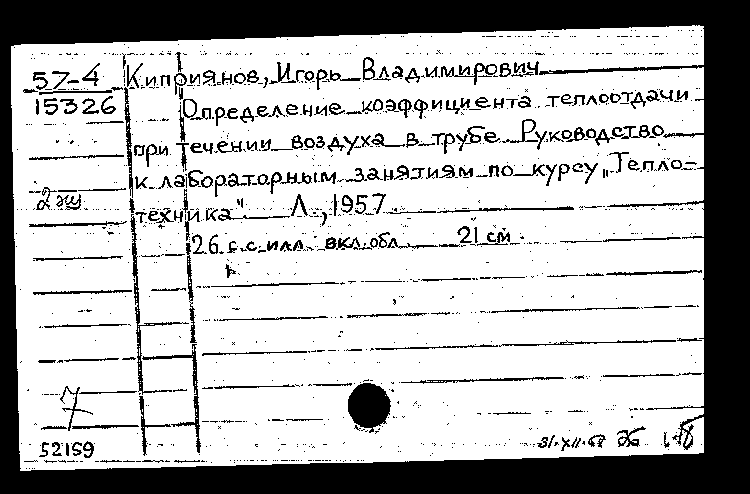 57-4 Киприянов, Игорь Владимирович
15326 Определение коэффициента теплоотдачи
при течении воздуха в трубе. Руководство
к лабораторным занятиям по курсу „Тепло-
2 эш
техника". Л., 1957.
26 с. с илл. вкл. обл. 21 см.
7
52159
31.XII.58